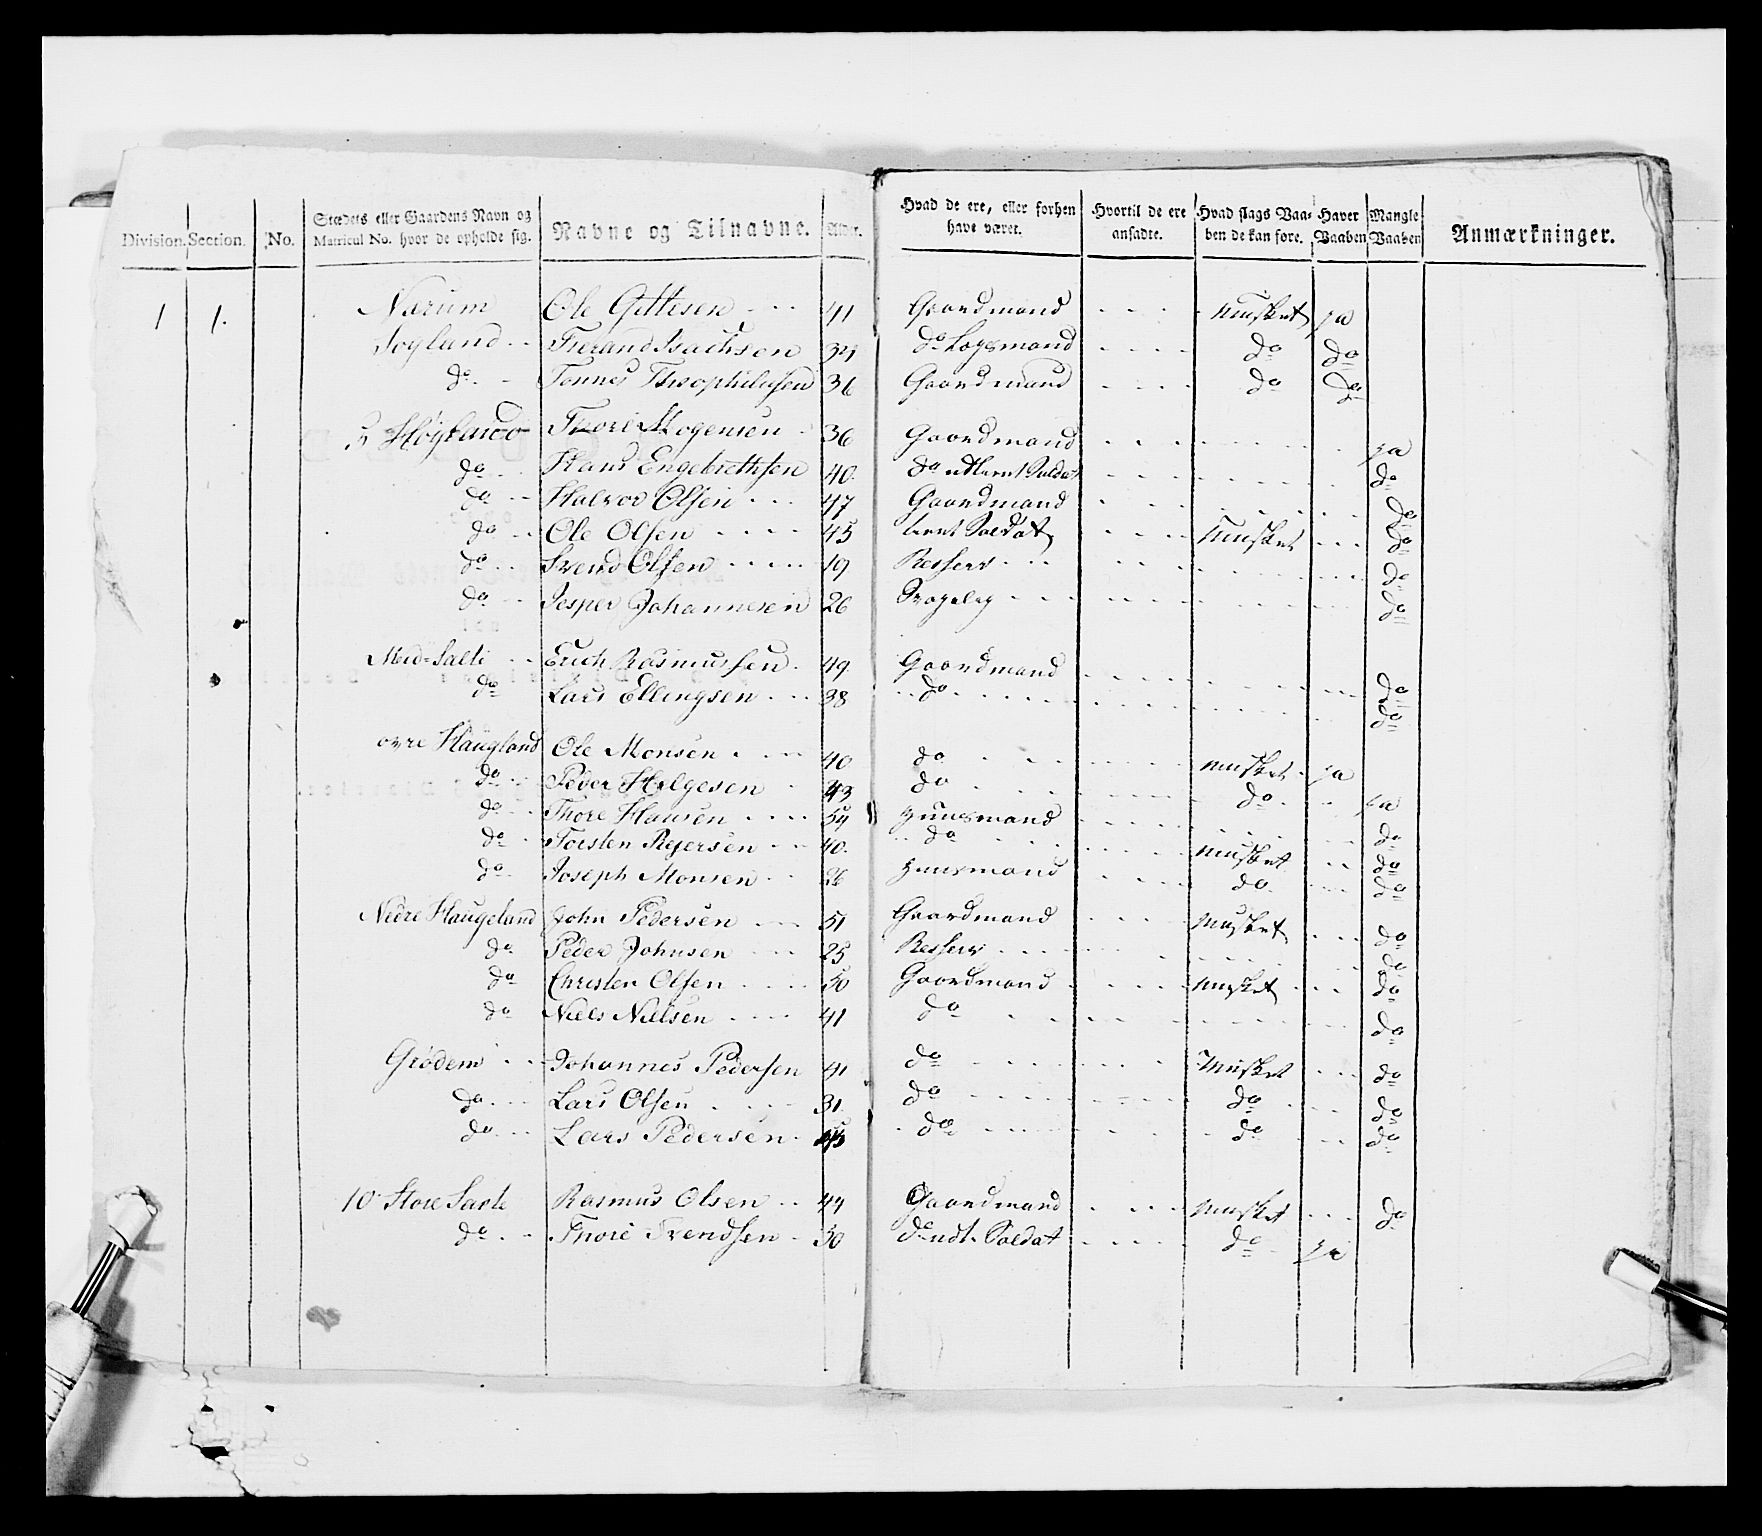 Division. Section. No. Stædets eller Gaardens Navn og Matricul No. hvor de opholde sig. Navne og Tilnavne. Alder. Hvad de ere, eller forhen have været. Hvortil de ere ansadte. Hvad slags Vaaben de kan føre. Haver Vaaben Mangle Vaaben Anmærkninger.
1 1. Nærum Ole Gittesen 41 Gaardmand Musket ja
Sogland Tierand Isachsen 34 do Logsmand do do
do Tønnes Theophilusen 36 Gaardmand do do
Høyland Thore Mogensen 36 Gaardmand ja
do Hans Engebrethsen 40. do udtient Soldat do
do Halvor Olsen 47 Gaardmand do
do Ole Olsen 45 tient Soldat Musket do
do Svend Olsen 19 Resserv do
do Jesper Johannesen 26 do
Med-Salte Erich Rasmussen 49. Gaardmand do
do Lars Ellingsen 38 do do
øvre Haugland Ole Monsen 40 do musket ja
do Peder Helgesen 43 do do ja
do Thore Hansen 54 Huusmand do
do Torsten Rejersen 40. do musket do
do Joseph Monsen 26 Huusmand do do
Nedre Haugeland John Pedersen 51 Gaardmand musket do
do Peder Johnsen 25 Resserv do
do Christen Olsen 50 Gaardmand musket do
do Niels Nielsen 41 do do
Grødem Johannes Pedersen 41 do Musket do
do Lars Olsen 31. do do do
do Lars Pedersen do do do
10 Store Salte Rasmus Olsen 44 Gaardmand musket do
do Thore Svendsen 30 do udt. Soldat do ja